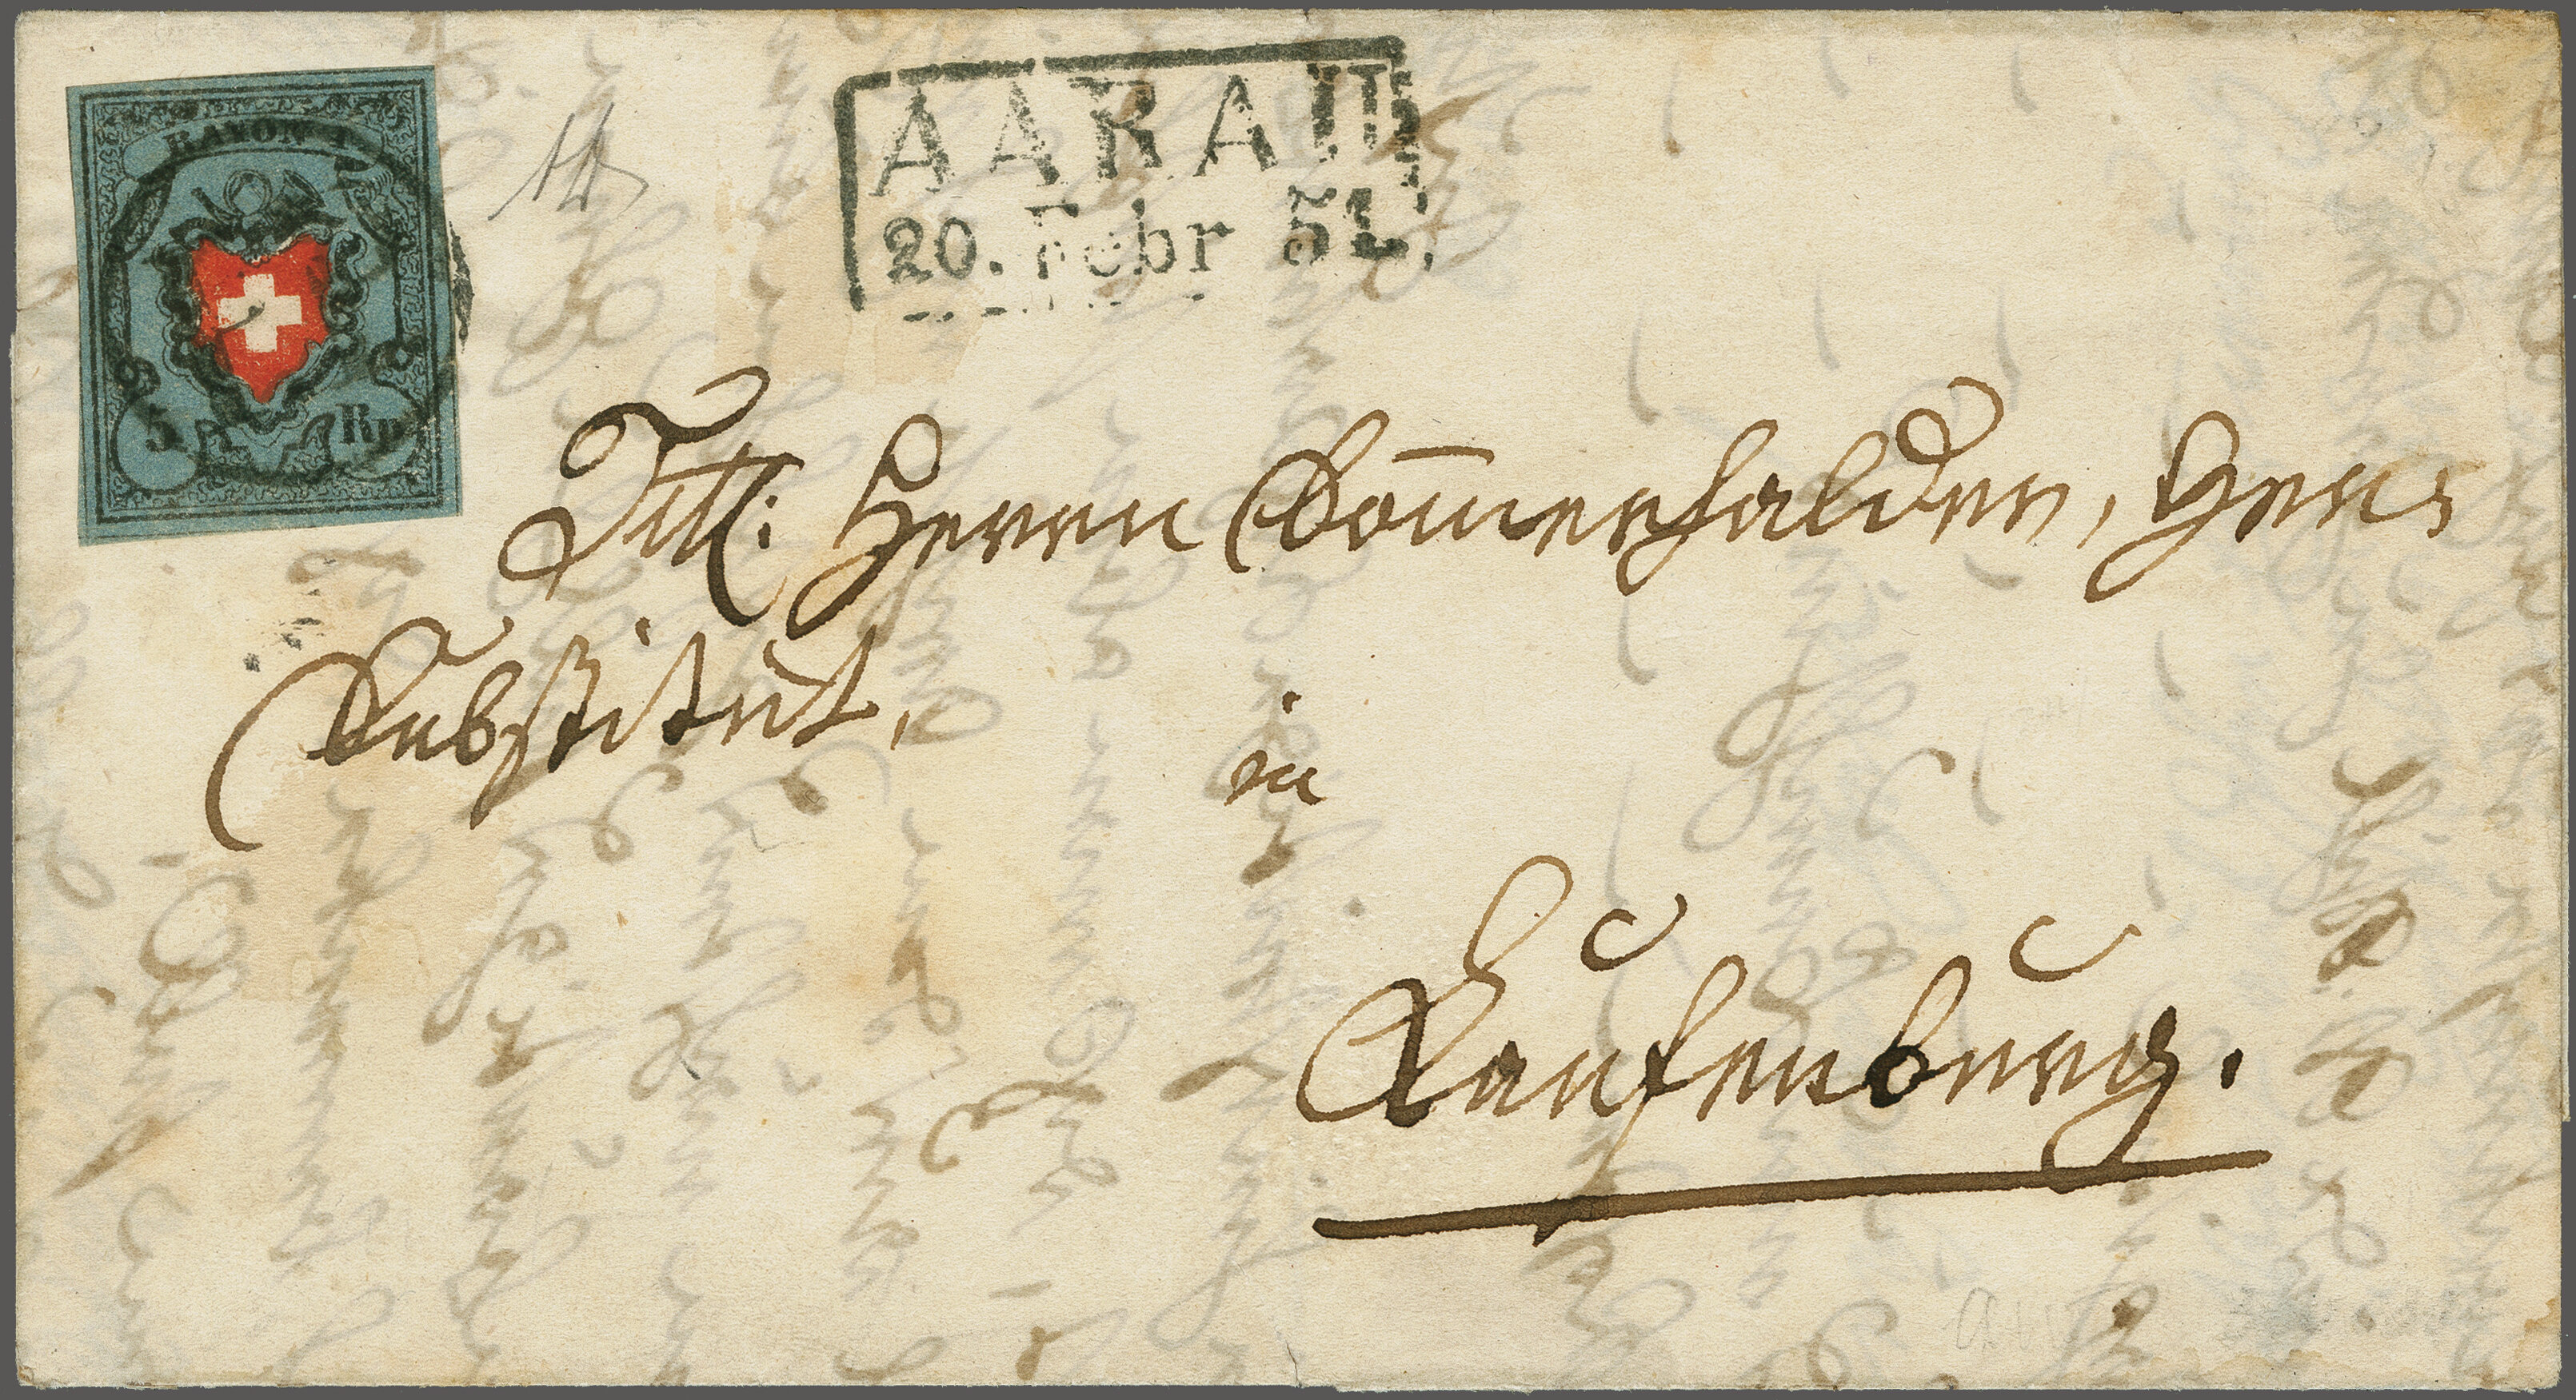 RAYON I
5 Rp
AARAU
20. Febr 51.
Titl: Herrn Som̅erhalder,
Substitut,
in
Laufenburg.